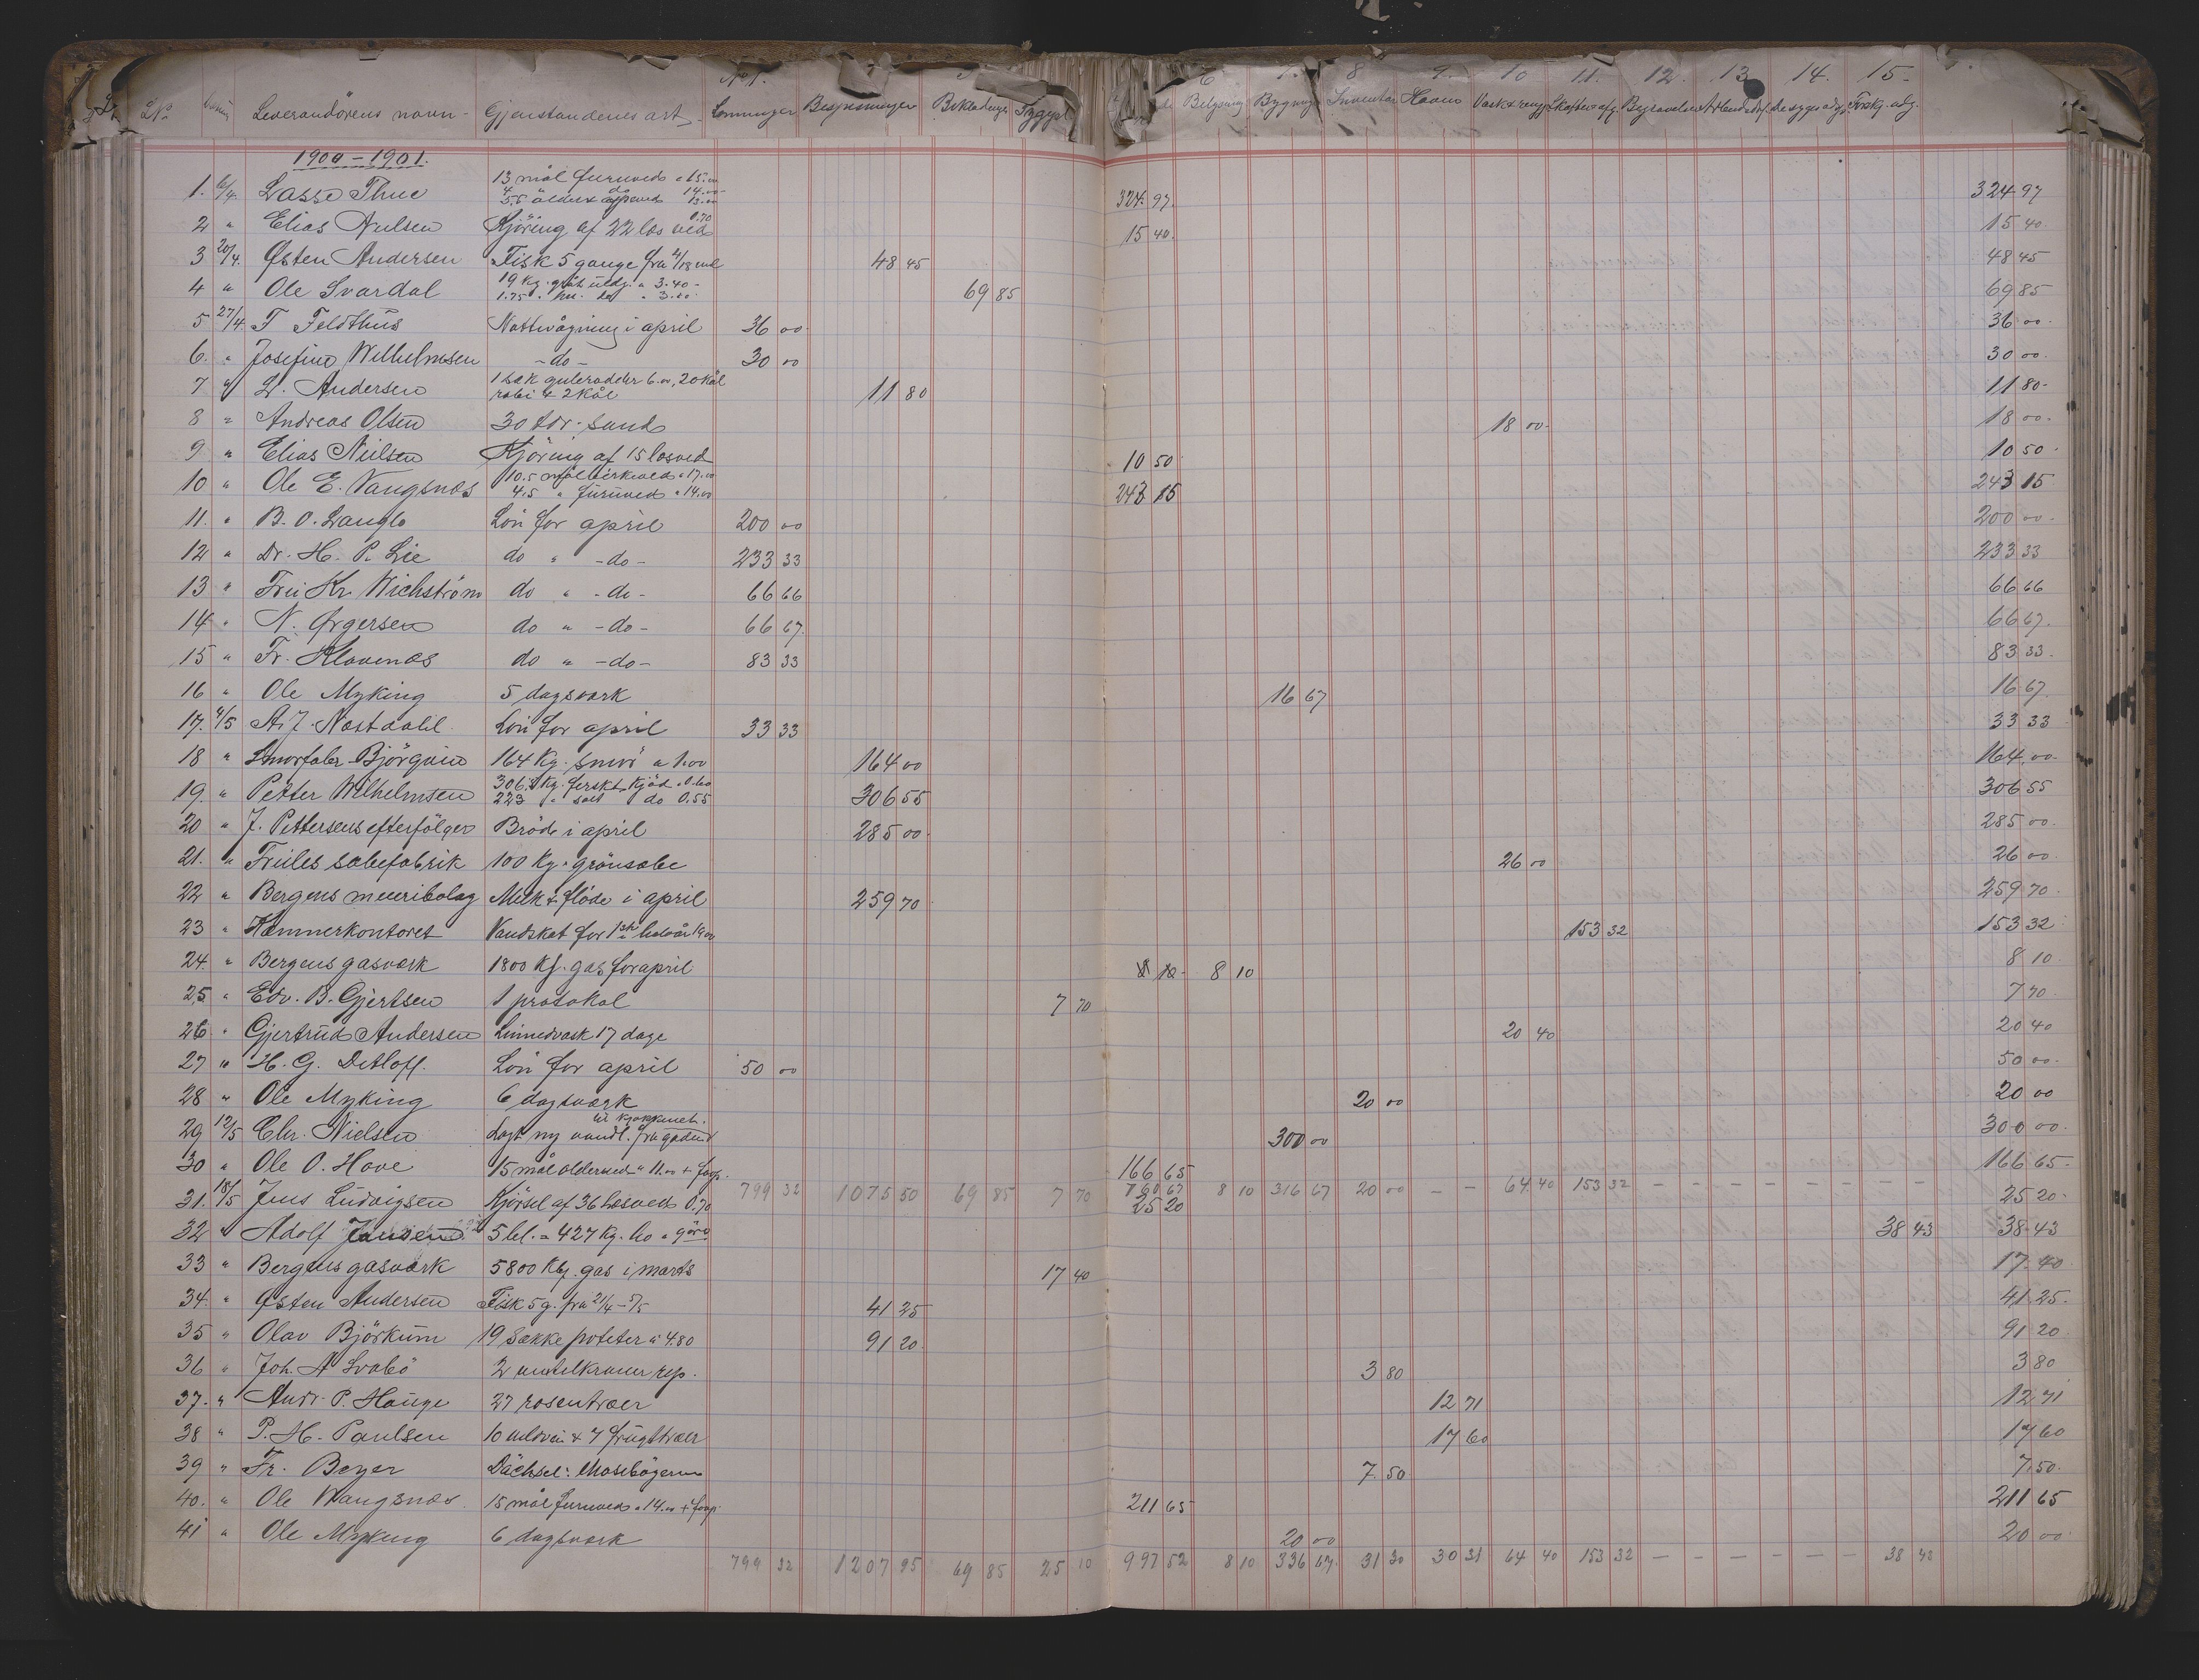 No 1. 6 7. 8 9. 10 11. 12. 13 14. 15-
No Leverandörens navn - Gjenstandenes art Lønninger Bespisningen Beklædningen Belysning Bygning Inventar Haven Begravelser
1900-1901.
13 mål furuved a 15.00
1. 6/4. Lasse Thue 4 " do 14.00 324 97. 324 97
5.5 older & aspeved 13.00
2 " Elias Nielsen Kjöring af 22 las ved 0.70 15 40. 15 40
3 20/4. Østen Andersen Fisk 5 gange fra 48 45 48 45
4 " Ole Svardal 19 Kg. gråt uldg. a 3.40 - 69 85 69 85
1.75 " do " 3.00
5 27/4. T Feldthus Nattevågning i april 36 00 36 00
6. " Josefine Wilhelmsen - do - 30 00 30 00
7 " L. Andersen 1 sæk gulerødder 6.00, 20 Kål 11 80 11 80-
rabi & 2 Kål
8 " Andreas Olsen 30 tdr. sand 18 00- 18 00-
9 " Elias Neilsen Kjöring af 15 las ved 10 50 10 50
10 " Ole E. Vangsnæs 10.5 mål birkeved a 17.00 243 15 243 15
4.5 " furuved " 14.00
11. " B. O. Langlo Lön for april 200 00 200 00-
12 " Dr. H. P. Lie do " - do - 233 33 233 33
13 " Fru Kr. Wichström do " - do - 66 66 66 66
14 " N. Ørgersen do " - do - 66 67. 66 67.
15 " Fr. Klovenæs do " - do - 83 33 83 33.
16 " Ole Myking 5 dagsværk 16 67 16 67
17. 4/5 A. J. Næstdahl. Lön for april 33 33 33 33
18 " Smørfabr. Björgvin 164 Kg. smör a 1.00 164 00 164 00-
19. " Petter Wilhelmsen 306.5 Kg. ferskt Kjöd a 0.60 306 55 306 55
223 " salt do 0.55
20 " J. Pettersens efterfölger Bröd i april 285 00 285 00
21. " Frieles sæbefabrik 100 Kg. grönsæbe 26 00 26 00
22 " Bergens meieribolag Melk & flöde i april 259 70 259 70
23 " Kæmnerkontoret Vandskat for 1ste halvår 1900 153 32 153 32
24. " Bergens gasværk 1800 Kf. gas for april 8 10 - 8 10 8 10
25 " Edv. B. Gjertsen 1 protokol 7 70 7 70
26 " Gjertrud Andersen Linnedvask 17 dage 20 40 20 40
27 " H. G. Detloff. Lön for april 50 00 50 00
28 " Ole Myking 6 dagsværk 20 00 20 00
til kjøkkenet.
29 12/5 Chr. Nielsen Lagt ny vandl. fra gaden 300 00 300 00
30 " Ole O. Hove 15 mål olderved a 11.00 + 166 65 166 65.
799 32 1075 50 69 85 7 70 760 67 8 10 316 67 20 00 - - 64 40 153 32 - - - - - - - -
31. 18/5 Jens Ludvigsen Kjörsel af 36 las ved 0.70 25 20 25 20
32 " Adolf Jansen 5 bl. = 427 Kg. ho a 9 öre 38 43 38 43
33 " Bergens gasværk 5800 Kbf. gas i marts 17 40 17 40
34. " Østen Andersen Fisk 5 g. fra 21/4 - 5/5 41 25 41 25.
35 " Olav Björkum 19 Sække poteter a 4.80 91 20 91 20
36 " Joh. A Svabö 2 rep. 3 80 3 80
37. " Andr. P. Hauge 27 rosentræer 12 71 12 71
38 " P. H. Paulsen 10 & 7 frugttræer 17 60 17 60
39 " Fr. Beyer Dächsel: Mosebögerne 7 50 7 50.
40. " Ole Wangsnæs 15 mål furuved a 14.00 + 211 65 211 65
41 " Ole Myking 6 dagsværk 20 00 20 00
799 32 1207 95 69 85 25 10 997 52 8 10 336 67. 31 30 30 31 64 40 153 32 - - - - - - - 38 43